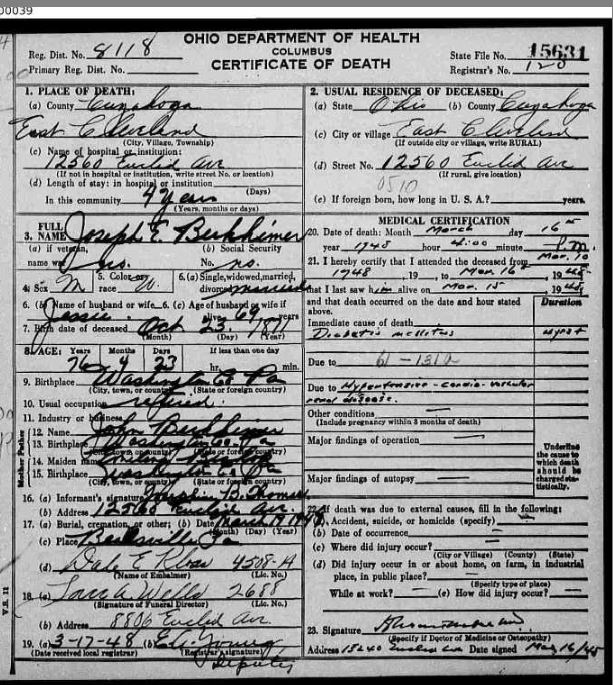 00039
OHIO DEPARTMENT OF HEALTH
COLUMBUS
CERTIFICATE OF DEATH
Reg. Dist. No. 8118
Primary Reg. Dist. No.
State File No. 15631
Registrar's No. 120
1. PLACE OF DEATH:
(a) County Cuyahoga
East Cleveland
(City, Village, Township)
(c) Name of hospital or institution:
12560 Euclid Av
(If not in hospital or institution, write street No. or location)
(d) Length of stay: in hospital or institution
(Days)
In this community 4 years
(Years, months or days)
2. USUAL RESIDENCE OF DECEASED:
(a) State Ohio (b) County Cuyahoga
(c) City or village East Cleveland
(If outside city or village, write RURAL)
(d) Street No. 12560 Euclid Av
(If rural, give location)
0510
(e) If foreign born, how long in U. S. A.? years.
3. FULL NAME Joseph E. Berkheimer
(a) If veteran, name war no.
(b) Social Security No. no.
4. Sex M 5. Color or race W. 6. (a) Single, widowed, married, divorced married
6. (b) Name of husband or wife 6. (c) Age of husband or wife if
Jessie. alive 69 years
7. Birth date of deceased Oct 23. 1871
(Month) (Day) (Year)
8. AGE: Years Months Days If less than one day
76 4 23 hr. min.
9. Birthplace Washington Co. Pa
(City, town, or county) (State or foreign country)
10. Usual occupation retired.
11. Industry or business
12. Name John Berkheimer
13. Birthplace Washington Co. Pa
14. Maiden name
15. Birthplace Washington Co Pa
(City, town, or county) (State or foreign country)
Mother Father
16. (a) Informant's signature B. Thomas
(b) Address 12560 Euclid Av.
17. (a) Burial, cremation, or other; (b) Date March 19 1948
(Month) (Day) (Year)
(c) Place Pa
(d) Dale E 4508-A
(Name of Embalmer) (Lic. No.)
18. (a) Wells 2688
(Signature of Funeral Director) (Lic. No.)
(b) Address 8806 Euclid Av.
19. (a) 3-17-48 (b)
(Date received local registrar) (Registrar's signature)
Deputy
V.S. 11
MEDICAL CERTIFICATION
20. Date of death: Month March day 16th
year 1948 hour 4:00 minute P.M.
21. I hereby certify that I attended the deceased from Mar. 10
1948, 19 , to Mar. 16, 1948
that I last saw him alive on Mar. 15 1948
and that death occurred on the date and hour stated above.
Duration
Immediate cause of death
Diabetes mellitus
Due to 61-131a
Due to Hypertensive-cardio-vascular
renal disease.
Other conditions
(Include pregnancy within 3 months of death)
Major findings of operation
Major findings of autopsy
Underline the cause to which death should be charged statistically.
22. If death was due to external causes, fill in the following:
(a) Accident, suicide, or homicide (specify)
(b) Date of occurrence
(c) Where did injury occur?
(City or Village) (County) (State)
(d) Did injury occur in or about home, on farm, in industrial
place, in public place?
(Specify type of place)
While at work? (e) How did injury occur?
23. Signature
(Specify if Doctor of Medicine or Osteopathy)
Address 15240 Euclid Ave Date signed Mar 16/48